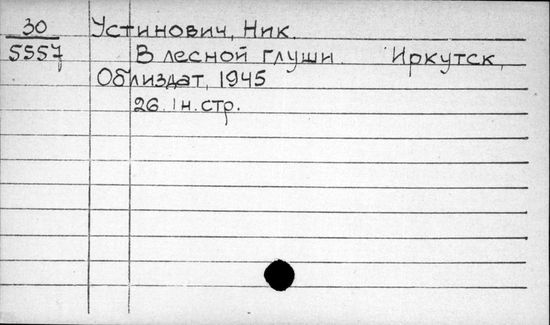 30 Устинович, Ник.
5557 В лесной глуши. Иркутск,
Облиздат, 1945
26. 1н. стр.